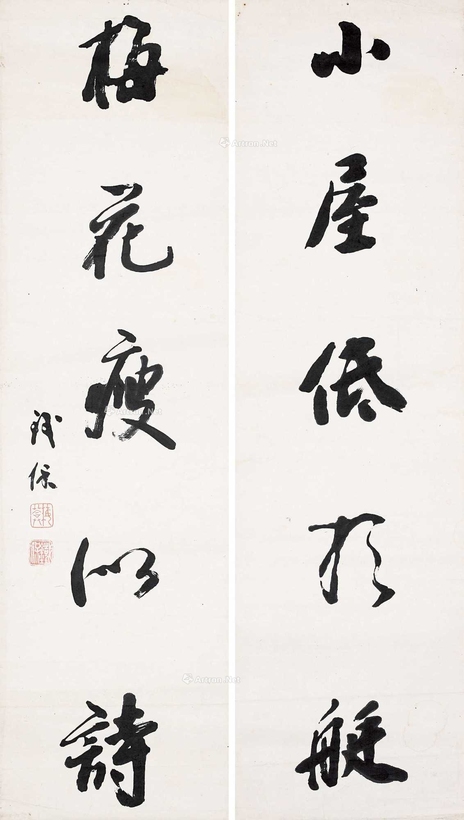 小屋低於艇
梅花瘦似詩
鐵保
Artron.Net
Artron.Net
Artron.Net